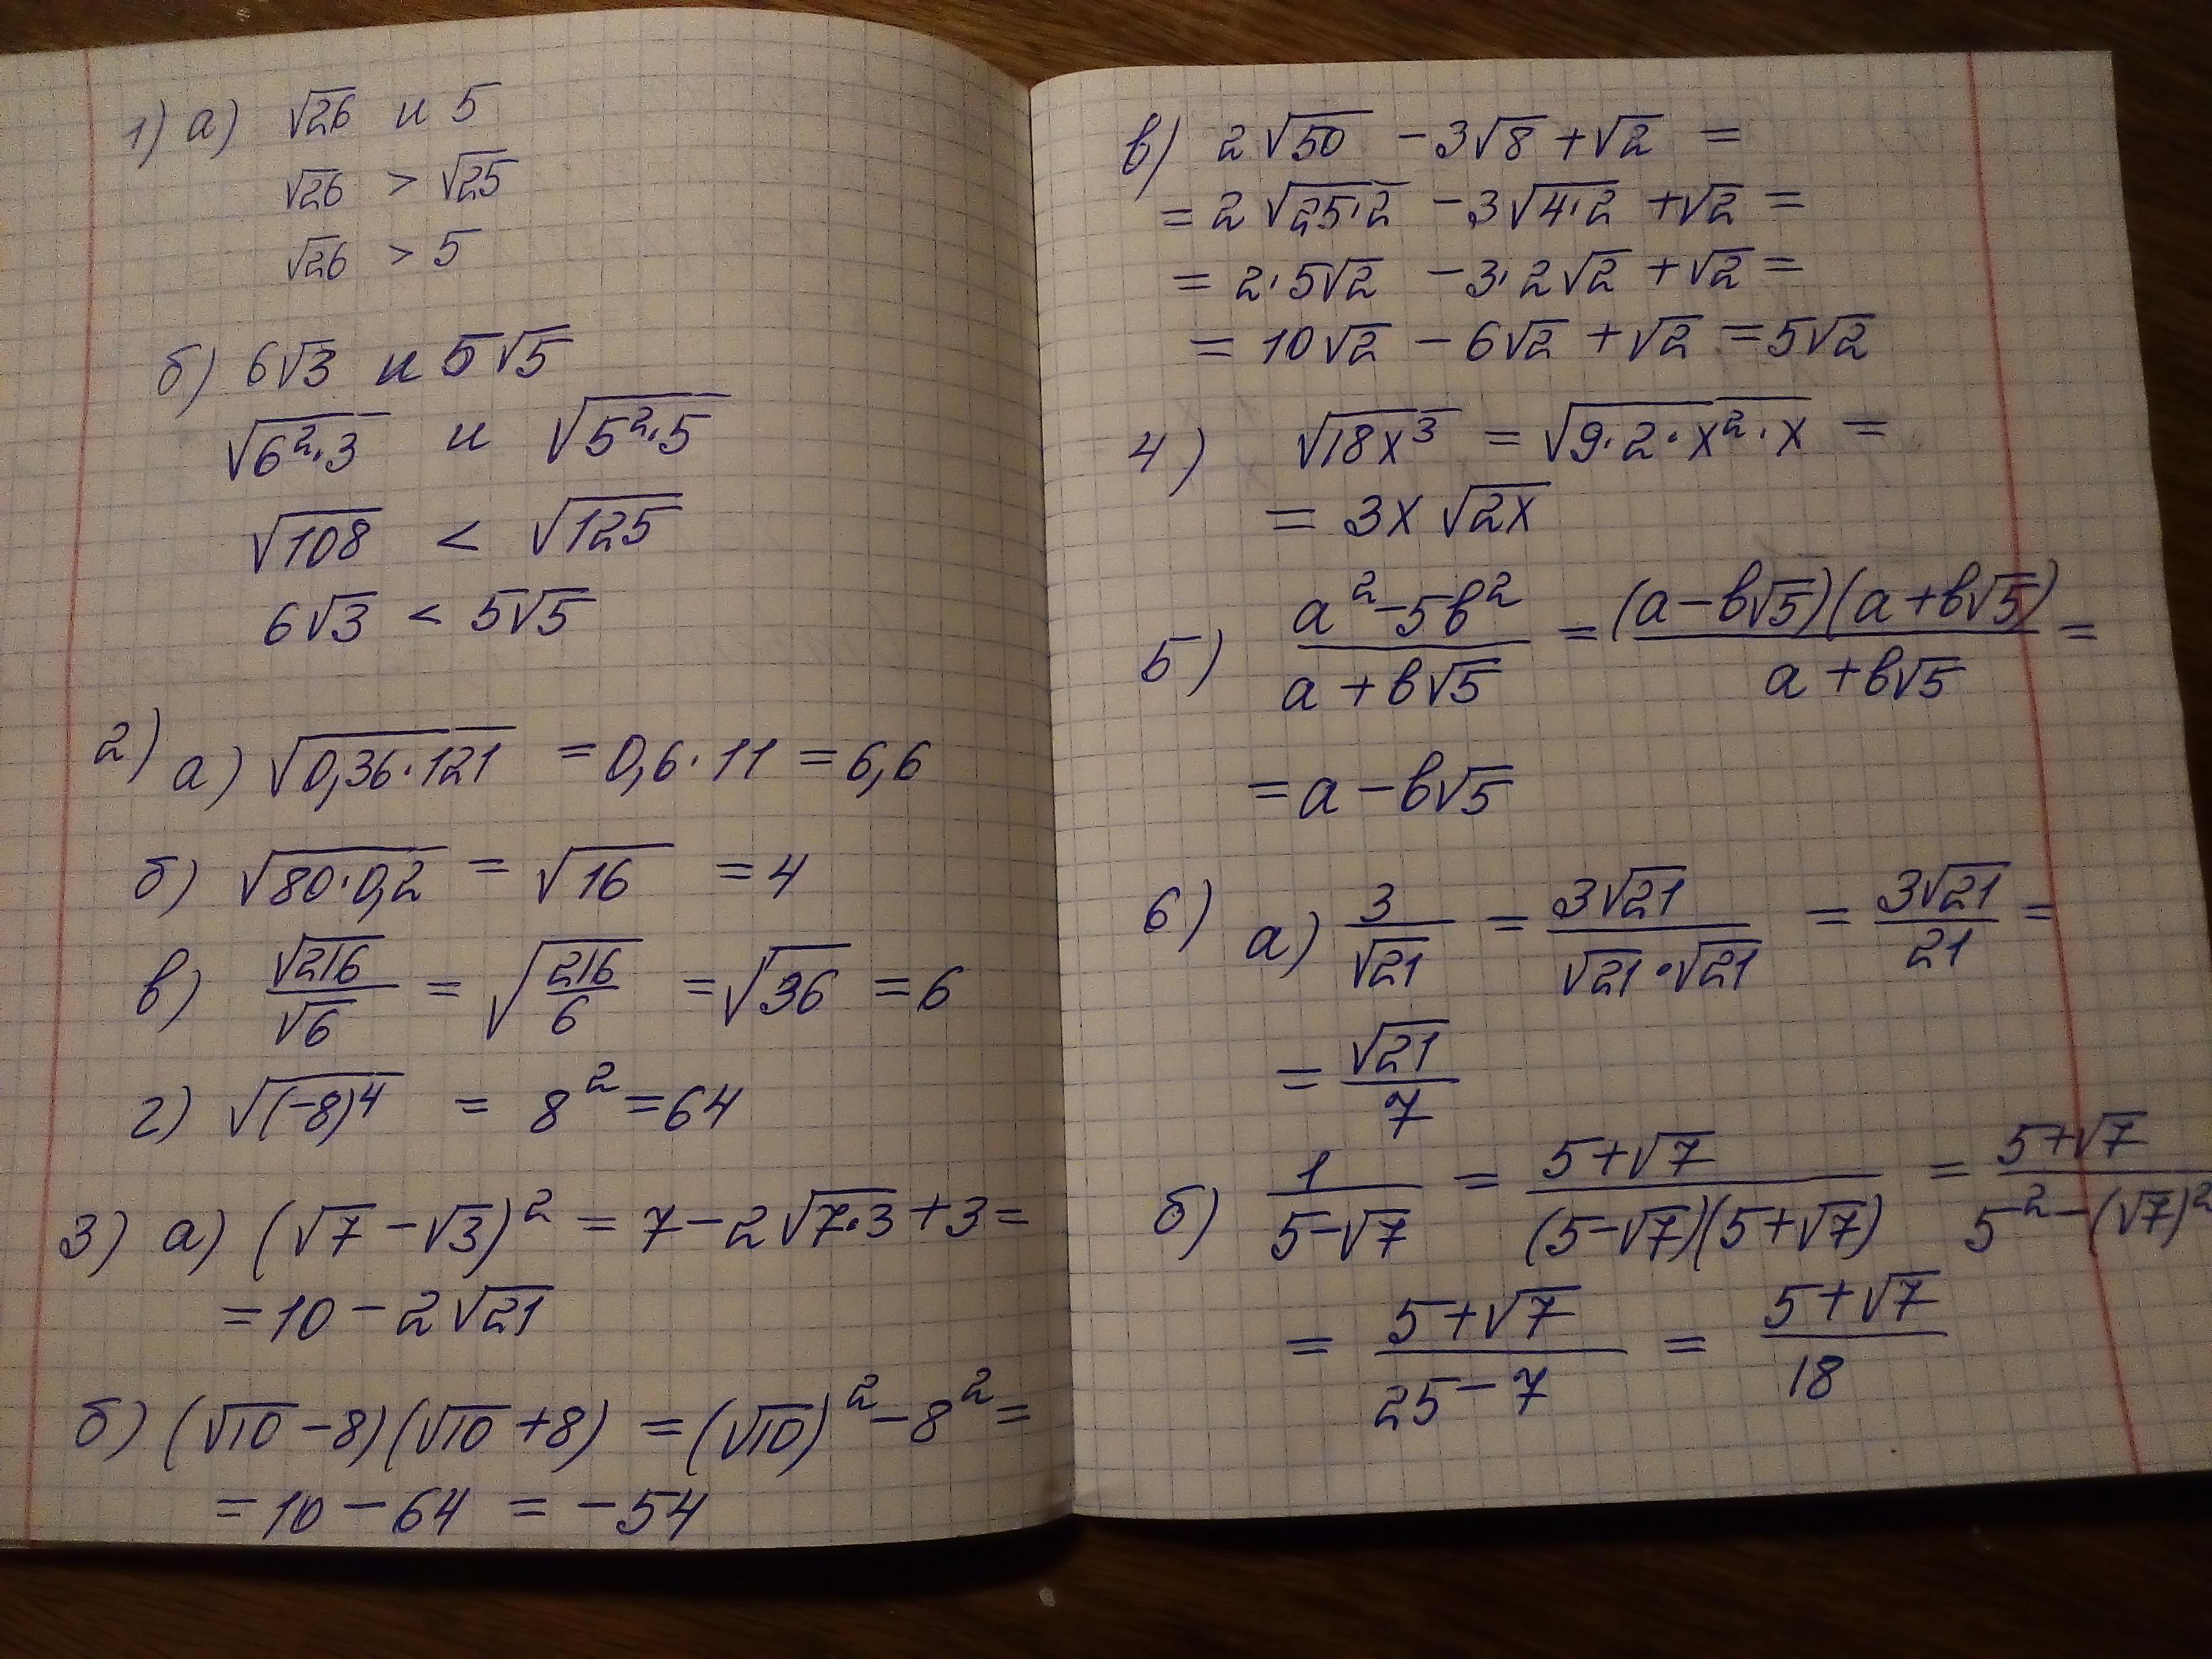 1) а) √26 и 5
√26 > √25
√26 > 5
б) 6√3 и 5√5
√(6²·3) и √(5²·5)
√108 < √125
6√3 < 5√5
2) а) √(0,36·121) = 0,6·11 = 6,6
б) √(80·0,2) = √16 = 4
в) √216/√6 = √(216/6) = √36 = 6
г) √((-8)⁴) = 8² = 64
3) а) (√7 - √3)² = 7 - 2√(7·3) + 3 =
= 10 - 2√21
б) (√10 - 8)(√10 + 8) = (√10)² - 8² =
= 10 - 64 = -54
в) 2√50 - 3√8 + √2 =
= 2√(25·2) - 3√(4·2) + √2 =
= 2·5√2 - 3·2√2 + √2 =
= 10√2 - 6√2 + √2 = 5√2
4) √(18x³) = √(9·2·x²·x) =
= 3x√(2x)
5) (a² - 5b²)/(a + b√5) = (a - b√5)(a + b√5)/(a + b√5) =
= a - b√5
6) а) 3/√21 = 3√21/(√21·√21) = 3√21/21 =
= √21/7
б) 1/(5-√7) = (5+√7)/((5-√7)(5+√7)) = (5+√7)/(5²-(√7)²)
= (5+√7)/(25-7) = (5+√7)/18